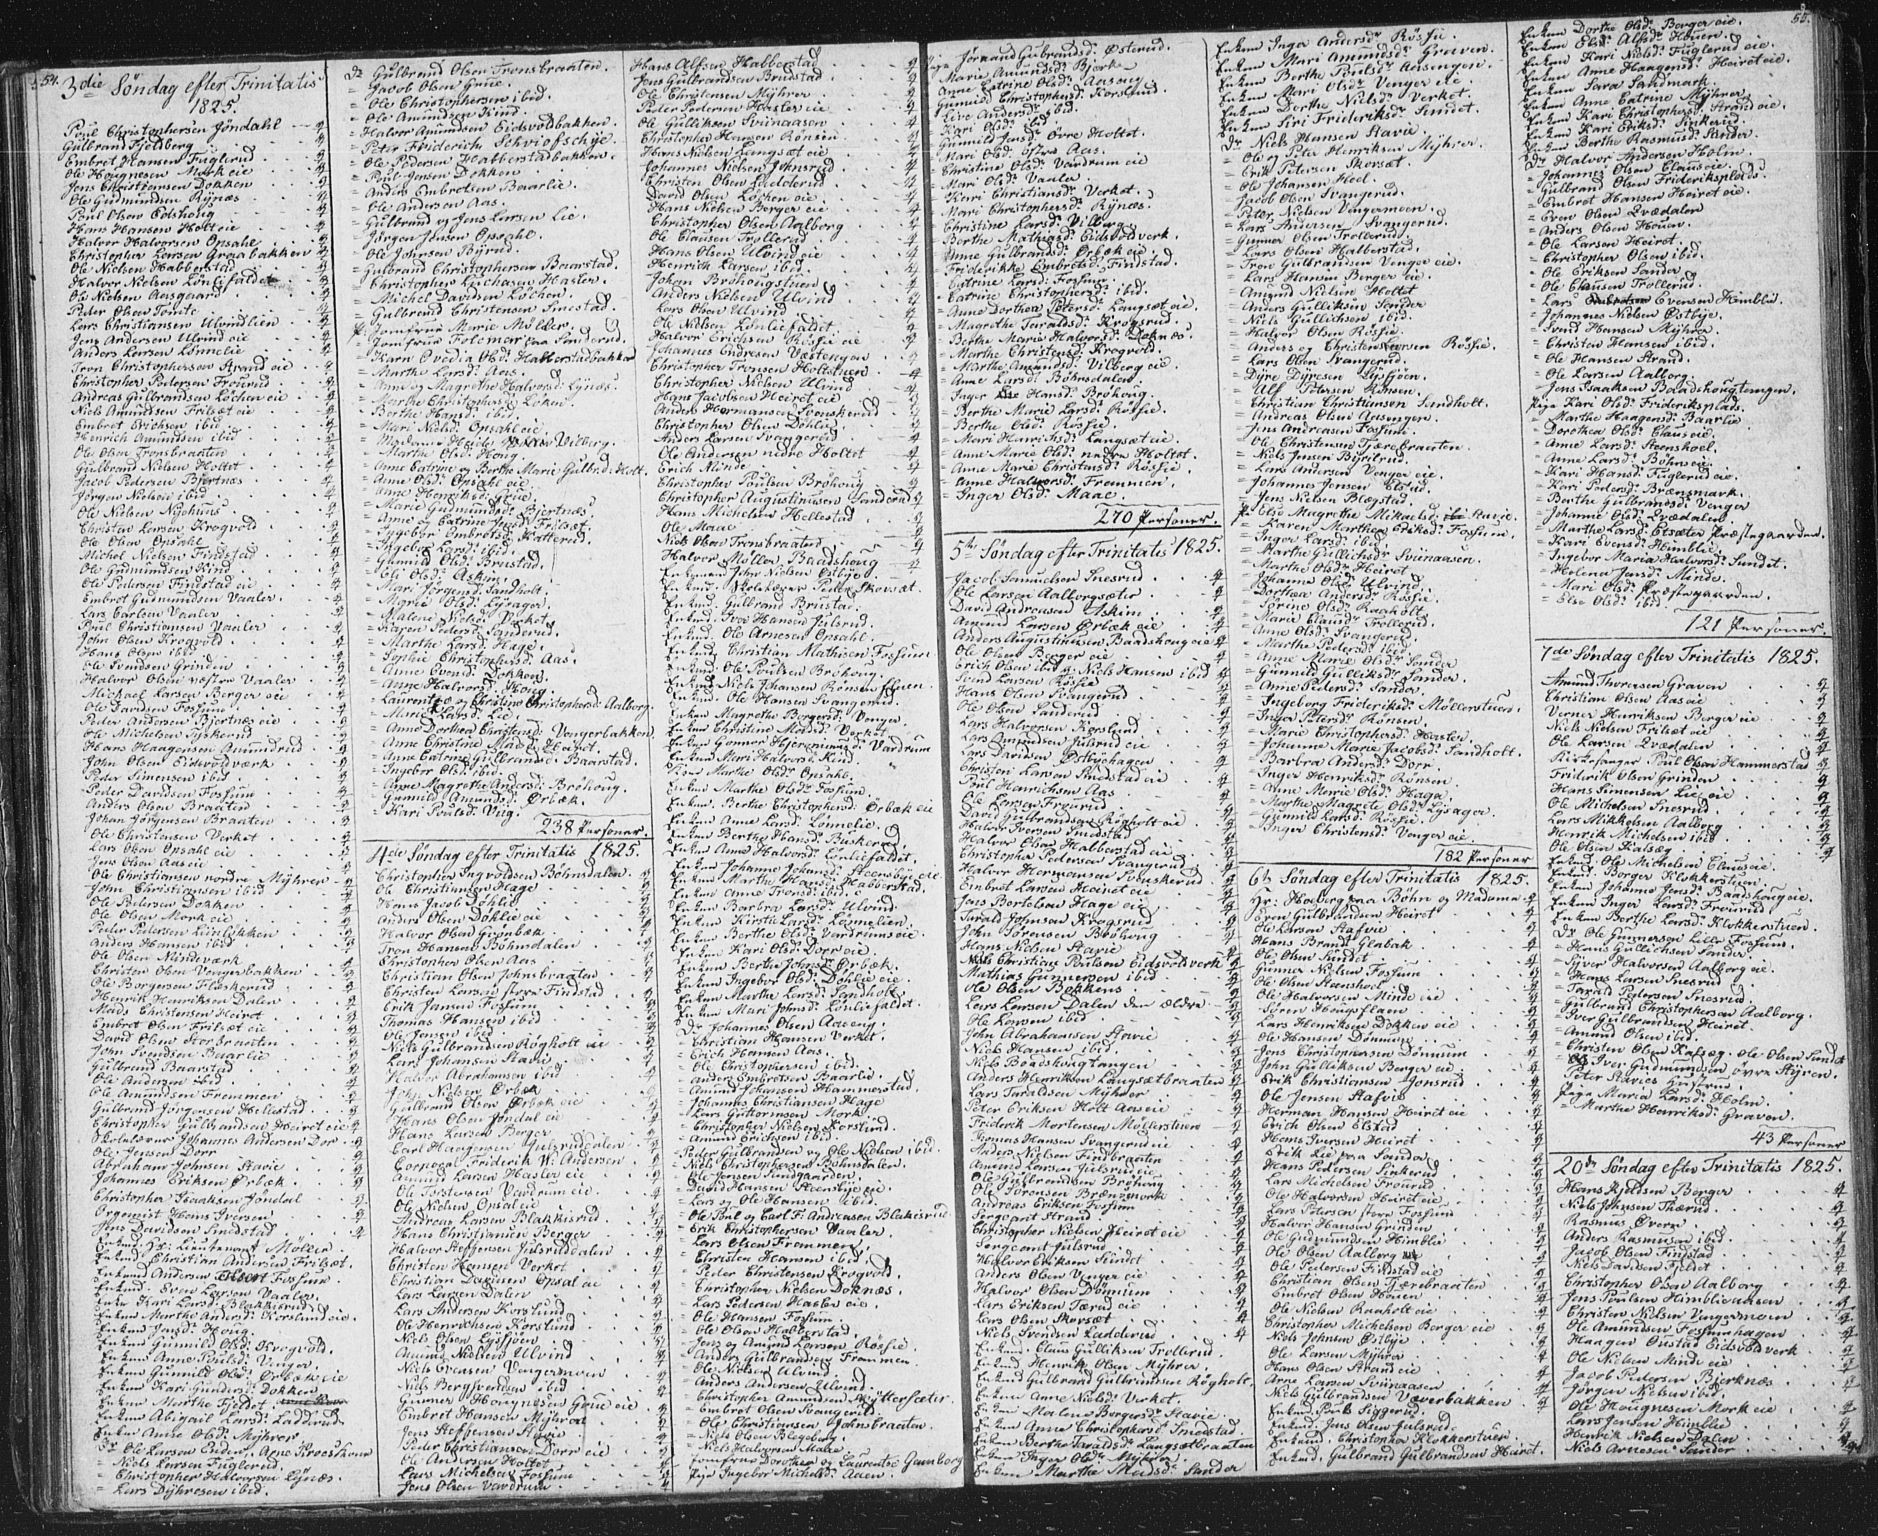 54.
3die Søndag efter Trinitatis
1825.
Poul Christophersen Jøndahl - 2
Gulbrand Fjeldberg
Embret Hansen Fuglerud
Ole Hougnesen Mork eie
Jens Christiansen Dokken
Ole Gudmundsen Rynæs
Poul Olsen Edshoug
Hans Hansen Holt eie
Halvor Halvorsen Opsahl
Christopher Larsen Grønbakken
Ole Nielsen Habberstad
Halvor Nielsen Lønliefaldet
Ole Nielsen Aasgaard
Peder Olsen Tomte
Lars Christiansen Ulvindlien
Jens Andersen Ulvind eie
Anders Larsen Lønnelie
Tron Christophersen Strand eie
Christopher Pedersen Frøurud
Andreas Gulbrandsen Løchen eie
Niels Amundsen Frilset eie
Embret Erichsen ibid
Henrich Amundsen ibid
Ole Olsen Tronsbraaten
Gulbrand Nielsen Holtet
Jacob Pedersen Bjertnæs
Jørgen Nielsen ibid
Ole Nielsen Nyhuus
Christen Larsen Krogvold
Ole Olsen Opsahl
Michel Nielsen Findstad
Ole Gudmundsen Kind
Ole Pedersen Findstad eie
Embret Gudmundsen Vaaler
Lars Carlsen Vaaler
Poul Christiansen Vaaler
John Olsen Krogvold
Hans Olsen ibid
Ole Svendsen Grinden
Halvor Olsen næstre Vaaler
Michael Larsen Berger eie
Ole Davidsen Fossum
Peder Andersen Bjertnæs eie
Ole Michelsen Tyskerud
Hans Haagensen Amundrud
John Olsen Eidsvoldværk
Peder Simensen ibid
Peder Davidsen Fossum
Anders Olsen Braaten
Johan Jørgensen Braaten
Ole Christensen Verket
Lars Olsen Opsahl eie
Jens Olsen Aas eie
Ole Christiansen nordre Myhrer
John Christiansen ibid
Ole Pedersen Dokken
Ole Olsen Mork eie
Peder Pedersen Lunlykken
Anders Hansen ibid
Ole Olsen Mindeværk
Christen Olsen Vengerbakken
Ole Borgersen Flaskerud
Henrik Henriksen Dalen
Mads Christensen Heiret
Embret Olsen Frilset eie
David Olsen Storbraaten
John Svendsen Baarlie
Gulbrand Baarstad
Ole Andersen ibid
Ole Amundsen Fremmen
Gulbrand Jørgensen Hellestad
Christopher Gulbrandsen Heiret eie
Skolelærer Johannes Andersen Dor
Ole Jensen Dorr
Abraham Johnsen Stavie
Johannes Eriksen Ørbæk
Christopher Isaaksen Jøndal
Organist Hans Iversen
Jens Davidsen Smedstad
Enkem. Hr. Lieutenant Møller
Enkem. Christian Andersen Frilset.
Enkem. Andersen Fossum
Enkem. Even Larsen Vaaler.
Enke Kari Larsd. Blakkisrud
Enken Marthe Andersd. Korslund eie.
Enken Jensd. Houg.
Enken Gunnild Olsd. Krogvold.
Enken Anne Poulsd. Venger.
Enken Gunnild Olsd. Ørbæk eie
Enken Kari Gundersd. Dokken
Enken Marthe Fjeldet
Enken Abigail Larsd. Ledderud
Enken Anne Olsd. Myhrer
Dr. Ole Larsen Enden, Arne Præsthuus
= Niels Larsen Fuglerud.
= Christopher Halvorsen Lynæs.
= Lars Dyhresen ibid.
Dr. Gulbrand Olsen Tronsbraaten.
= Jacob Olsen Grue.
= Ole Christophersen ibid.
= Ole Amundsen Kind.
= Halvor Amundsen Eidsvoldbakken.
= Peter Friderich Schviofschye.
= Ole Pedersen Habberstadbakken.
= Poul Jensen Dokken.
= Anders Embretsen Baarlie.
= Ole Andersen Aas.
= Gulbrand og Jens Larsen Lie.
= Jørgen Jensen Opsahl.
= Ole Johnsen Byrud.
= Gulbrand Christophersen Baarstad.
= Christopher Zachasen Hasler.
= Michel Davidsen Løchen.
= Gulbrand Christensen Smestad.
P. Jomfrue Marie Møller.
= Jomfrue Folkmar paa Sanderud.
= Karn Ovedia Olsd. Habberstadbakken
= Marthe Larsd. Aas.
= Anne og Magrethe Halvorsd. Lynæs.
= Marthe Christophersd. Løken.
= Berthe Hansd. ibid.
= Mari Nielsd. Opsahl eie.
= Marthe Olsd. Houg.
= Anne Catrine og Berthe Marie Gulbr.d. Holt.
= Anne Olsd. Opsahl eie.
= Anne Henriksd. Grue.
= Marie Gudmundsd. Bjertnæs
= Anne og Catrine Jensd. Frilset.
= Ingebor Embretsd. Hatterud.
= Ingebor Larsd. ibid.
= Gunnild Olsd. Brustad.
= Eli Olsd. Askim.
= Mari Jørgensd. Sandholt.
= Marie Olsd. Lysager.
= Malene Nielsd. Verket.
= Karen Pedersd. Sanderud.
= Marthe Larsd. Hage.
= Sophie Christophersd. Aas.
= Anne Evensd. Dokken.
= Anne Halvorsd. Houg.
= Laurentze og Christine Christophersd. Aalborg.
= Marie Larsd. Lie.
= Anne Dorthea Christensd. Vengerbakken.
= Anne Christine Madsd. Heiret.
= Anne Catrine Gulbransd. Baarstad.
= Ingebor Olsd. ibid.
= Anne Magrethe Andersd. Brøhoug.
= Gunnild Amundsd. Ørbæk.
= Kari Poulsd. Viig.
238 Personer.
4de Søndag efter Trinitatis 1825.
Christopher Ingvoldsen Bøhnsdalen
Ole Christiansen Hage
Hans Jacob Døhlie
Anders Olsen Døhlie eie
Halvor Olsen Grønbæk
Tron Hansen Bøhnsdalen
Christopher Olsen Aas
Christian Olsen Johnsbraaten
Christen Larsen store Findstad
Erik Jansen Fossum
Thomas Hansen ibid
Ole Jensen ibid
Niels Gulbrandsen Røgholt eie
Lars Johansen Stavie
Halvor Abrahamsen ibid
John Nielsen Ørbæk
Gulbrand Olsen Ørbæk eie
Hans Olsen Jøndal eie
Hans Larsen Berger
Carl Haagensen Julsruddalen
Corporal Friderik W. Andersen
Amund Larsen Hasler eie
Ole Torstensen Vardrum eie
Ole Nielsen Opsal eie
Andreas Larsen Blakkisrud
Hans Christiansen Berger
Halvor Steffensen Julsruddalen
Christen Hansen Verket
Christian Davidsen Opsal eie
Lars Larsen Dalen
Lars Andersen Korslund
Ole Henrichsen Korslund
Niels Olsen Lyssjøen
Amund Nielsen Ulvind
Niels Evensen Vengermoen
Niels Bergsvendsen ibid
Gunner Hougnæsen Grue eie
Embret Hansen Myhrer
Jens Steffensen Stavie
Peder Christiansen Dorr eie
Ole Andersen Holtet
Lars Michelsen Fossum
Jens Olsen Vardrum
Hans Alfsen Habberstad
Jens Gulbrandsen Brustad
Ole Christensen Myhrer
Peder Pedersen Hasler eie
Ole Gulliksen Sviinaasen
Christopher Hansen Rønsen
Hans Nielsen Langset eie
Johannes Nielsen Johnsrud
Christen Olsen Ledderud
David Olsen Løchen eie
Hans Nielsen Berger eie
Christopher Olsen Aalborg
Ole Clausen Trøllerud
Hans Olsen Ulvind eie
Henrich Larsen ibid
Johan Brøhougstuen
Anders Nielsen Ulvind
Lars Olsen Ulvind
Ole Nielsen Lønliefaldet
Halvor Erichsen Røssie eie
Johannes Endresen Vestengen
Christopher Tronsen Holtstuen
Christopher Nielsen Ulvind
Hans Jacobsen Heiret eie
Anders Hermansen Svenskerud
Christopher Olsen Døhlie
Anders Larsen Svangerud
Ole Andersen nedre Holtet
Erich Minde
Christopher Poulsen Brøhoug
Christopher Augustinusen Sanderud
Hans Michelsen Hellestad
Ole Maae
Niels Olsen Tronsbraaten
Halvor Møller, Baadshoug
Enkemand John Nielsen Østbye
Enkem. Skolelærer Peder Skovsæt.
Enkem. Gulbrand Brustad.
Enkem. Iver Hansen Julsrud.
Enkem. Ole Arnesen Opsahl.
Enkem. Christian Mathisen Fossum
Enkem. Ole Poulsen Brøhoug.
Enkem. Niels Johansen Rønsen
Enkem. Ole Hansen Svangerud.
Enken Magrethe Borgersd. Venger.
Enken Christine Madsd. Verket
Enken Gonnor Hjeronimusd. Vardrum
Enken Mari Halvorsd. Kind.
Enken Marthe Olsd. Opsahl.
Enken Marthe Olsd. Fossum.
Enken Berthe Christophersd. Ørbæk eie
Enken Anne Larsd. Lønnelie.
Enken Berthe Hansd. Buskerud.
Enken Anne Halvorsd. Lønliefaldet.
Enken Johanne Johansd. Steensbye eie
Enken Marthe Hansd. Habberstad.
Enken Anne Tronsd. ibid.
Enken Barbra Larsd. Ulvind.
Enken Kirstie Larsd. Lønnelien.
Enken Berthe Olsd. Vardrums eie.
Enken Kari Olsd. Dorr eie.
Enken Berthe Johnsd. Ørbæk.
Enken Ingebor Olsd. Døhlie eie.
Enken Marthe Larsd. Sandholt.
Enken Mari Johnsd. Lønliefaldet.
Dr. Johannes Olsen Aaseng.
= Christian Hansen Verket.
= Erich Hansen Aas.
= Ole Christophersen ibid.
= Anders Embretsen Baarlie.
= Amund Johansen Hammerstad.
= Johannes Christiansen Hage
= Lars Guttormsen Mork.
= Christopher Nielsen Korslund.
= Amund Erichsen ibid.
= Peder Gulbrandsen og Ole Nielsen ibid.
= Niels Christophersen Bøhnsdalen.
= Ole Jensen Sundgaarden.
= David Hansen Steensbye eie.
= Lars og Ole Hansen ibid.
= Ole Poul og Carl F. Andreasen Blakisrud
= Erik Christophersen Vaaler.
= Lars Olsen Fremmen.
= Christen Hansen ibid.
= Peder Christensen Krogvold.
= Christopher Nielsen Doknæs.
= Lars Pedersen Hasler eie.
= Ole Hansen Fossum
= Ole Olsen Halberstad
= Jens og Amund Larsen Røssie.
= Anders Gulbrandsen Fremmen
= Ole Nielsen Ulvind
= Anders Andersen Ulvind.
= Christopher Amundsen Skyttersæter.
= Embret Olsen Svangerud
= Ole Christiansen Johnsbraaten
= Niels Olsen Blegeberg.
= Niels Halvorsen Make.
Jomfrue Dorothea og Laurentze Gamborg
Pige Ingebor Michelsd. Aaen.
Pige Jørand Gulbrandsd. Østerud.
= Marie Amundsd. Bjerke
= Anne Catrine Olsd. Aaseng.
= Gunnild Christophersd. Korslund.
= Live Andersd. ibid.
= Kari Olsd. ibid
= Gunnild Jensd. Øvre Holtet.
= Mari Olsd. Østre Aas.
= Christine Olsd. Vardrum eie
= Mari Olsd. Vaaler.
= Kari Christiansd. Verket.
= Mari Christophersd. Rynæs.
= Christine Larsd. Vilberg.
= Berthe Mathiasd. Eidsvoldverk.
= Anne Gulbrandsd. Ørbæk eie
= Friderikke Embretsd. Findstad.
= Catrine Larsd. Fossum.
= Catrine Christophersd. ibid.
= Anne Dorthea Petersd. Langsæt eie.
= Magrethe Taraldsd. Krogsrud.
= Berthe Marie Halvorsd. Doknæs.
= Marthe Christensd. Krogvold.
= Marthe Amundsd. Vilberg eie.
= Anne Larsd. Bøhnsdalen
= Inger Hansd. Brøhoug.
= Berthe Marie Larsd. Røssie.
= Berthe Olsd. Røssie.
= Mari Henrichsd. Langsæt eie.
= Anne Marie Olsd. nedre Holtet.
= Anne Marie Christensd. Røssie
= Anne Halvorsd. Fremmen.
= Inger Olsd. Maae.
270 Personer.
5te Søndag efter Trinitatis 1825.
Jacob Samuelsen Snesrud
Ole Larsen Aalborgsæter
David Andreasen Askim
Amund Larsen Ørbæk eie
Anders Augustinusen Baadshoug eie
Ole Olsen Berger eie
Erich Olsen ibid og Niels Hansen ibid
Svend Larsen Røssie
Hans Olsen Svangerud
Ole Olsen Sanderud
Lars Halvorsen Korslund
Lars Amundsen Julsrud eie
Lars Davidsen Østbyehagen
Christen Larsen Smedstad eie
Poul Henrichsen Aas
Ole Larsen Frøurud
David Gulbrandsen Røgholt eie
Halvor Iversen Smedstad
Halvor Olsen Halberstad eie
Christopher Pedersen Svangerud
Halvor Hermansen Svenskerud
Embret Larsen Heiret eie
Jens Bertelsen Hage eie
Tarald Johnsen Krogsrud
John Sørensen Brøhoug
Hans Nielsen Stavie
Niels Christian Poulsen Eidsvoldsverk
Mathias Gunnersen ibid
Ole Olsen Bekkens
Lars Larsen Dalen den ældre
Ole Larsen ibid
John Abrahamsen Stavie
Niels Hansen ibid
Niels Baadshougtangen
Anders Henriksen Langsætbraaten
Lars Taraldsen Myhrer
Peter Eriksen Holt Aas eie
Friderik Mortensen Møllerstuen
Thomas Hansen Svangerud eie
Anders Nielsen Findbraaten
Amund Larsen Julsrud eie
Ole Gulbrandsen Brøhoug
Ole Sørensen Brænsmork
Andreas Eriksen Fossum
Sergeant Strand
Christopher Nielsen Heiret eie
Sergeant Julsrud
Halvor Eriksen Sundet
Anders Olsen Venger eie
Halvor Olsen Dønnum
Lars Eriksen Tærud eie
Lars Olsen Skovsæt
Niels Svendsen Ladderud
Enkem. Claus Gulliksen Trøllerud.
Enkem. Henrik Olsen Myhrer.
Enkem. Gulbrand Gulbrandsen Røgholt.
Enken Anne Nielsd. Verket.
Enken Malene Borgersd. Stavie.
Enken Anne Christophersd. Smedstad.
Enken Berthe Taraldsd. Langsætbraaten
Enken Inger Olsd. Myhrer
Enken Marthe Madsd. Sander
Enken Inger Andersd. Røssie.
Enken Mari Amundsd. Graven.
Enken Berthe Poulsd. Aasengen.
Enken Mari Olsd. Venger eie.
Enken Dorthe Nielsd. Verket.
Enken Siri Frideriksd. Sundet.
Dr. Niels Hansen Stavie.
= Ole og Peter Henriksen Myhrer.
= Erik Petersen Skovsæt.
= Ole Johansen Hoel.
= Jacob Olsen Svangerud.
= Peter Nielsen Vengermoen.
= Lars Andersen Svangerud.
= Gunner Olsen Trøllerud.
= Lars Olsen Halberstad.
= Tron Gulbrandsen Venger eie.
= Lars Hansen Berger eie.
= Amund Nielsen Holtet
= Anders Gulliksen Sander
= Niels Gullichsen ibid.
= Halvor Olsen Røssie.
= Anders og Christen Larsen Røssie.
= Lars Olsen Svangerud.
= Dyre Dyresen Lysjøen.
= Alf Petersen Rønsen.
= Christian Christiansen Sandholt.
= Andreas Olsen Aasengen.
= Jens Andreasen Fossum.
= Ole Christensen Tjærebraaten.
= Niels Jensen Byrilrud.
= Lars Andersen Venger eie.
= Johannes Jensen Elstad.
= Jens Nielsen Blegstad.
Pige Magrethe Mikaelsd. Stavie.
= Karen Marthea Eriksd. Fossum.
= Inger Larsd. ibid.
= Marthe Gullichsd. Sviinaasen.
= Marthe Olsd. Heiret
= Johanne Olsd. Ulvind.
= Dorthea Andersd. Røssie.
= Sørine Olsd. Raaholt.
= Marie Clausd. Trøllerud.
= Anne Olsd. Svangerud.
= Marthe Pedersd. ibid.
= Anne Marie Olsd. Sander
= Gunnild Gulliksd. Sander.
= Anne Pedersd. Sander.
= Ingeborg Frideriksd. Møllerstuen.
= Inger Petersd. Rønsen.
= Marie Christophersd. Hasler.
= Johanne Marie Jacobsd. Sandholt.
= Barbra Andersd. Dorr.
= Inger Henriksd. Rønsen
= Anne Marie Olsd. Hage.
= Marthe Magrete Olsd. Lysager.
= Gunnild Larsd. Røssie.
= Inger Christensd. Venger eie.
182 Personer
6te Søndag efter Trinitatis 1825.
Hr. Hoeberg paa Bøhn og Madame
Even Gulbrandsen Heiret
Ole Larsen Stafvie
Hans Brandt Glabak
Ole Olsen Sundet
Gunner Nielsen Fossum
Ole Olsen Steenshoel
Ole Halvorsen Minde eie
Søren Hougsflaen
Lars Henriksen Dokken eie
Ole Hansen Dønnum
Jens Christophersen Dønnum
John Gulliksen Berger eie
Erik Christiansen Jonsrud
Ole Jensen Stafvie
Herman Hansen Heiret eie
Erich Olsen Elstad
Hans Iversen Heiret
Erik Lie paa Sander
Hans Pedersen Sinkerud
Lars Michelsen Frøurud
Ole Halvorsen Heiret eie
Lars Petersen store Fossum
Halvor Hansen Grinden
Ole Gudmundsen Himblie
Ole Olsen Aalborg
Ole Pedersen Findstad eie
Christian Olsen Tjærebraaten
Embret Olsen Houen
Ole Nielsen Raaholt eie
Christopher Michelsen Berger eie
Niels Johnsen Østbye
Ole Larsen Myhrer
Hans Olsen Strand eie
Arne Larsen Sviinaasen
Niels Gulbrandsen Væverbakken
Enkem. Poul Siggerud
Enkem. Jens Olsen Julsrud.
Enkem. Christopher Klokkerstuen.
Enkem. Gulbrand Gulbrandsen Heiret.
55.
Enken Dorthe Olsd. Berger eie.
Enken Else Alfsd. Houen.
Enken Kari Nielsd. Fuglerud eie.
Enken Anne Haagensd. Heiret eie.
Enken Sara Sandmark.
Enken Anne Catrine Myhrer.
Enken Kari Christophersd. Strand eie.
Enken Kari Eriksd. Sinkerud.
Enken Berthe Rasmusd. Sander.
Dr. Halvor Andersen Holm.
= Johannes Olsen Claus eie.
= Gulbrand Olsen Frideriksplads.
= Embret Hansen Heiret eie.
= Even Olsen Lvædalen
= Anders Olsen Houen.
= Ole Larsen Heiret.
= Christopher Olsen ibid.
= Ole Eriksen Sander.
= Ole Clausen Trøllerud.
= Lars Evensen Himblie.
= Johannes Nielsen Østbye.
= Svend Hansen Myhrer.
= Christen Hansen ibid.
= Ole Hansen Strand.
= Ole Larsen Aalborg.
= Jens Isaaksen Baadshougtangen.
Pige Kari Olsd. Frideriksplads.
= Marthe Haagensd. Baarlie
= Dorothea Olsd. Claus eie.
= Anne Larsd. Steenshoel.
= Anne Larsd. Bøhns eie.
= Kari Hansd. Fuglerud eie.
= Kari Pedersd. Brænsmark.
= Berthe Gulbransd. Venger
= Johanne Olsd. Lvædalen.
= Marthe Larsd. Elsæter Præstegaarden.
= Kari Evensd. Himblie.
= Ingebor Maria Halvorsd. Sundet.
= Helena Jensd. Minde.
= Mari Olsd. Præstegaarden.
= Else Olsd. ibid.
121 Personer.
7de Søndag efter Trinitatis 1825.
Amund Thoresen Graven
Christian Olsen Aas eie
Verner Henriksen Berger eie
Niels Nielsen Frilset eie
Ole Larsen Lvædalen
Kirkesanger Poul Olsen Hammerstad
Friderik Olsen Grinden
Hans Simensen Lie eie
Ole Michelsen Snesrud
Lars Mikkelsen Aalborg
Henrik Michelsen ibid
Ole Olsen Kalsæg
Enkem. Ole Michelsen Claus eie.
Enkem. Borger Klokkerstuen.
Enken Johanne Jensd. Baadshoug eie.
Enken Inger Larsd. Frøurud
Enken Berthe Larsd. Klokkerstuen.
Dr. Ole Gunnersen Lille Fossum.
= Hans Gullichsen Sander.
= Siver Halvorsen Aalborg eie.
= Hans Larsen Snesrud
= Tarald Pedersen Snesrud.
= Gulbrand Christophersen Aalborg.
= Iver Gulbrandsen Heiret.
= Amund Olsen ibid.
= Christen Olsen Kalsæg. Ole Olsen Sundet
= Iver Gudmundsen øvre Styren.
= Peter Stavies Huustrue.
Pige Maria Larsd. Holm.
= Marthe Henriksd. Graven.
43 Personer
20de Søndag efter Trinitatis 1825.
Hans Kjeldsen Berger
Niels Johnsen Tærud
Rasmus Øvern
Anders Rasmusen ibid
Jacob Olsen Findstad
Niels Davidsen Fjeldet
Christopher Olsen Aalborg
Jens Poulsen Himblieaasen
Christen Nielsen Vengermoen
Ole Amundsen Fossumhagen
Haagen Onstad Eidsvoldverk
Ole Nielsen Minde eie
Jacob Pedersen Bjerknæs
Jørgen Nielsen ibid.
Ole Hougnesen Mork eie
Lars Jensen Himblie
Henrik Nielsen Dalen
Niels Arnesen Sander